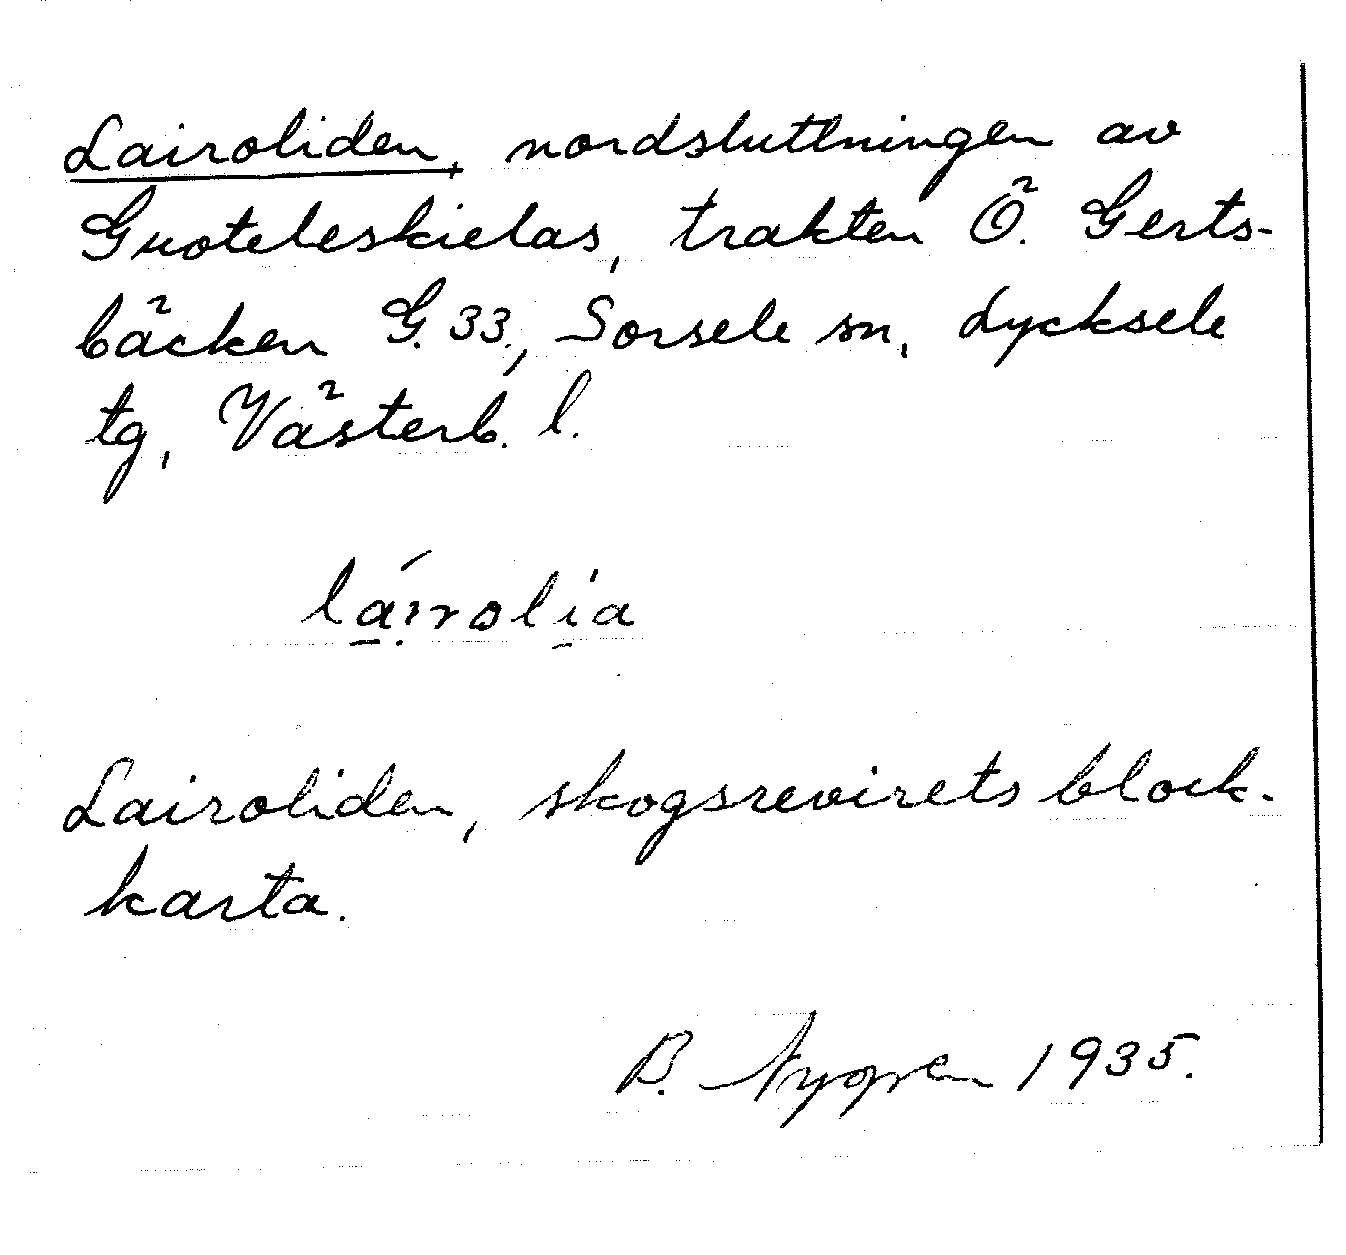 Lairoliden, nordsluttningen av
Guoteleskielas, trakten Ö. Gerts-
bäcken G. 33., Sorsele sn, Lycksele
tg, Västerb. l.
lái̭rolìa
Lairoliden, skogsrevirets block-
karta.
B. Nygren 1935.